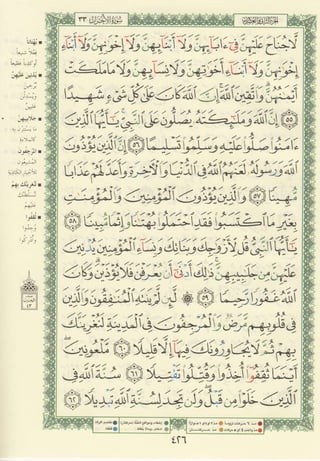 الجزء الثاني والعشرون
سورة الأحزاب
٣٣
لَّا جُنَاحَ عَلَيْهِنَّ فِىٓ ءَابَآئِهِنَّ وَلَآ أَبْنَآئِهِنَّ وَلَآ إِخْوَٰنِهِنَّ وَلَآ أَبْنَآءِ
إِخْوَٰنِهِنَّ وَلَآ أَبْنَآءِ أَخَوَٰتِهِنَّ وَلَا نِسَآئِهِنَّ وَلَا مَا مَلَكَتْ
أَيْمَٰنُهُنَّ وَٱتَّقِينَ ٱللَّهَ إِنَّ ٱللَّهَ كَانَ عَلَىٰ كُلِّ شَىْءٍ شَهِيدًا
٥٥ إِنَّ ٱللَّهَ وَمَلَٰٓئِكَتَهُۥ يُصَلُّونَ عَلَى ٱلنَّبِىِّ يَٰٓأَيُّهَا ٱلَّذِينَ
ءَامَنُوا۟ صَلُّوا۟ عَلَيْهِ وَسَلِّمُوا۟ تَسْلِيمًا ٥٦ إِنَّ ٱلَّذِينَ يُؤْذُونَ
ٱللَّهَ وَرَسُولَهُۥ لَعَنَهُمُ ٱللَّهُ فِى ٱلدُّنْيَا وَٱلْءَاخِرَةِ وَأَعَدَّ لَهُمْ عَذَابًا
مُّهِينًا ٥٧ وَٱلَّذِينَ يُؤْذُونَ ٱلْمُؤْمِنِينَ وَٱلْمُؤْمِنَٰتِ
بِغَيْرِ مَا ٱكْتَسَبُوا۟ فَقَدِ ٱحْتَمَلُوا۟ بُهْتَٰنًا وَإِثْمًا مُّبِينًا ٥٨
يَٰٓأَيُّهَا ٱلنَّبِىُّ قُل لِّأَزْوَٰجِكَ وَبَنَاتِكَ وَنِسَآءِ ٱلْمُؤْمِنِينَ يُدْنِينَ
عَلَيْهِنَّ مِن جَلَٰبِيبِهِنَّ ذَٰلِكَ أَدْنَىٰٓ أَن يُعْرَفْنَ فَلَا يُؤْذَيْنَ وَكَانَ
ٱللَّهُ غَفُورًا رَّحِيمًا ٥٩ ۞ لَّئِن لَّمْ يَنتَهِ ٱلْمُنَٰفِقُونَ وَٱلَّذِينَ
فِى قُلُوبِهِم مَّرَضٌ وَٱلْمُرْجِفُونَ فِى ٱلْمَدِينَةِ لَنُغْرِيَنَّكَ
بِهِمْ ثُمَّ لَا يُجَاوِرُونَكَ فِيهَآ إِلَّا قَلِيلًا ٦٠ مَّلْعُونِينَ
أَيْنَمَا ثُقِفُوٓا۟ أُخِذُوا۟ وَقُتِّلُوا۟ تَقْتِيلًا ٦١ سُنَّةَ ٱللَّهِ فِى
ٱلَّذِينَ خَلَوْا۟ مِن قَبْلُ وَلَن تَجِدَ لِسُنَّةِ ٱللَّهِ تَبْدِيلًا ٦٢
٤٢٦